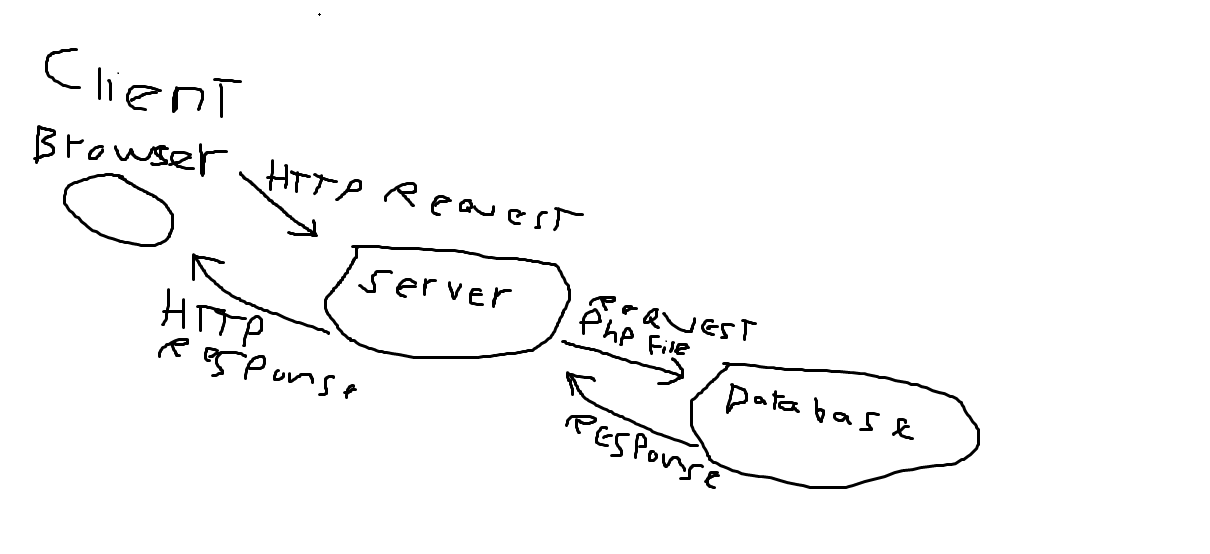 Client
Browser
HTTP Request
Server
HTTP
Response
Request
Php File
Database
Response